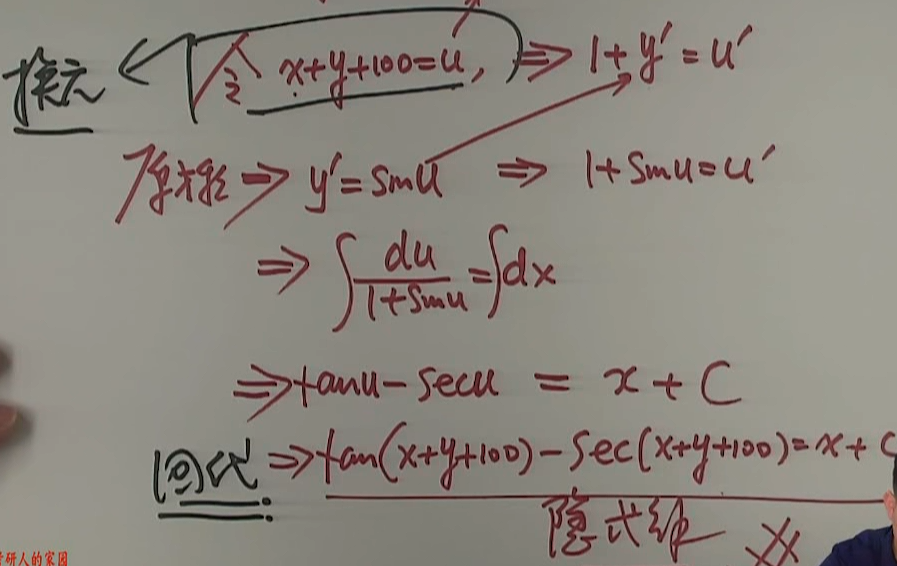 换元 令 x+y+100=u, ⇒ 1+y'=u'
原方程 ⇒ y'=sinu ⇒ 1+sinu=u'
⇒ ∫ du/(1+sinu) = ∫dx
⇒ tanu-secu = x+C
回代 ⇒ tan(x+y+100)-sec(x+y+100)=x+C
隐式解
考研人的家园